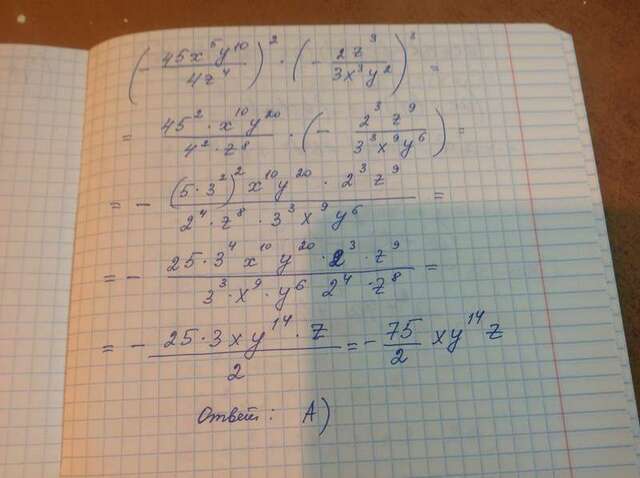 (- 45x⁵y¹⁰ / 4z⁴)² · (- 2z³ / 3x³y²)³ =
= 45² · x¹⁰y²⁰ / 4² · z⁸ · (- 2³ z⁹ / 3³x⁹y⁶) =
= - (5·3²)² x¹⁰y²⁰ · 2³z⁹ / 2⁴ · z⁸ · 3³x⁹y⁶ =
= - 25·3⁴ x¹⁰y²⁰ · 2³ · z⁹ / 3³ · x⁹ · y⁶ 2⁴ · z⁸ =
= - 25·3xy¹⁴ · z / 2 = - 75/2 xy¹⁴z
Ответ: А)